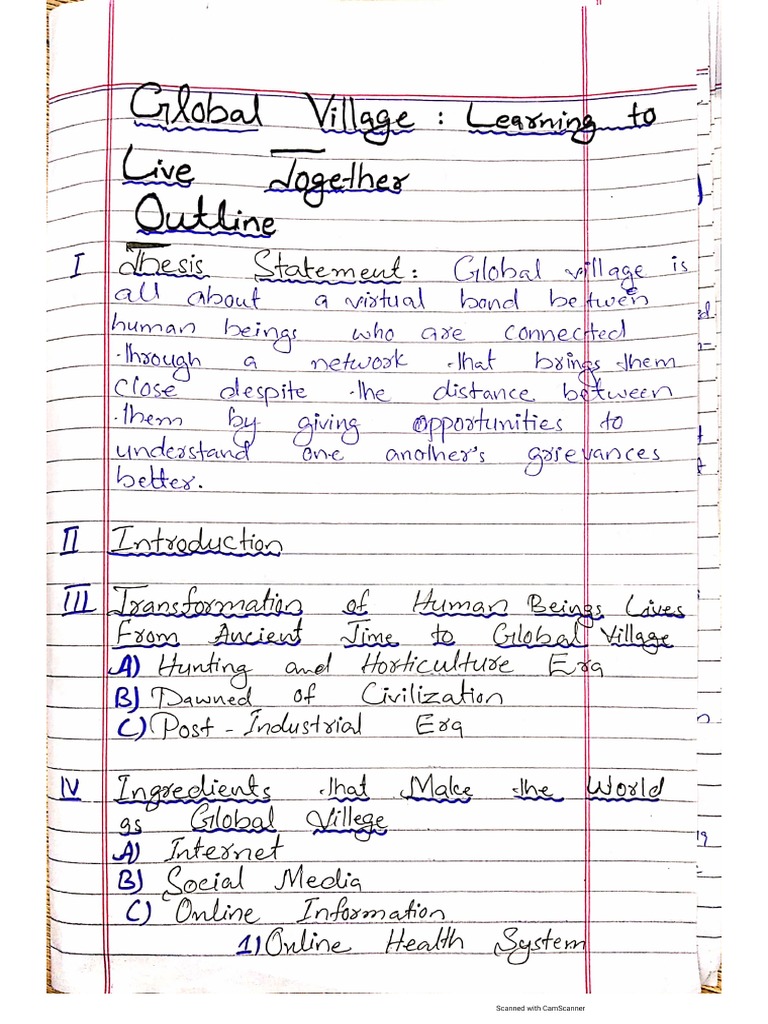 Global Village : Learning to
Live Together
Outline
I Thesis Statement: Global village is
all about a virtual bond between
human beings who are connected
through a network that brings them
close despite the distance between
them by giving opportunities to
understand one another's grievances
better.
II Introduction
III Transformation of Human Beings Lives
From Ancient Time to Global Village
A) Hunting and Horticulture Era
B) Dawned of Civilization
C) Post-Industrial Era
IV Ingredients that Make the World
as Global Villege
A) Internet
B) Social Media
C) Online Information
1) Online Health System
Scanned with CamScanner